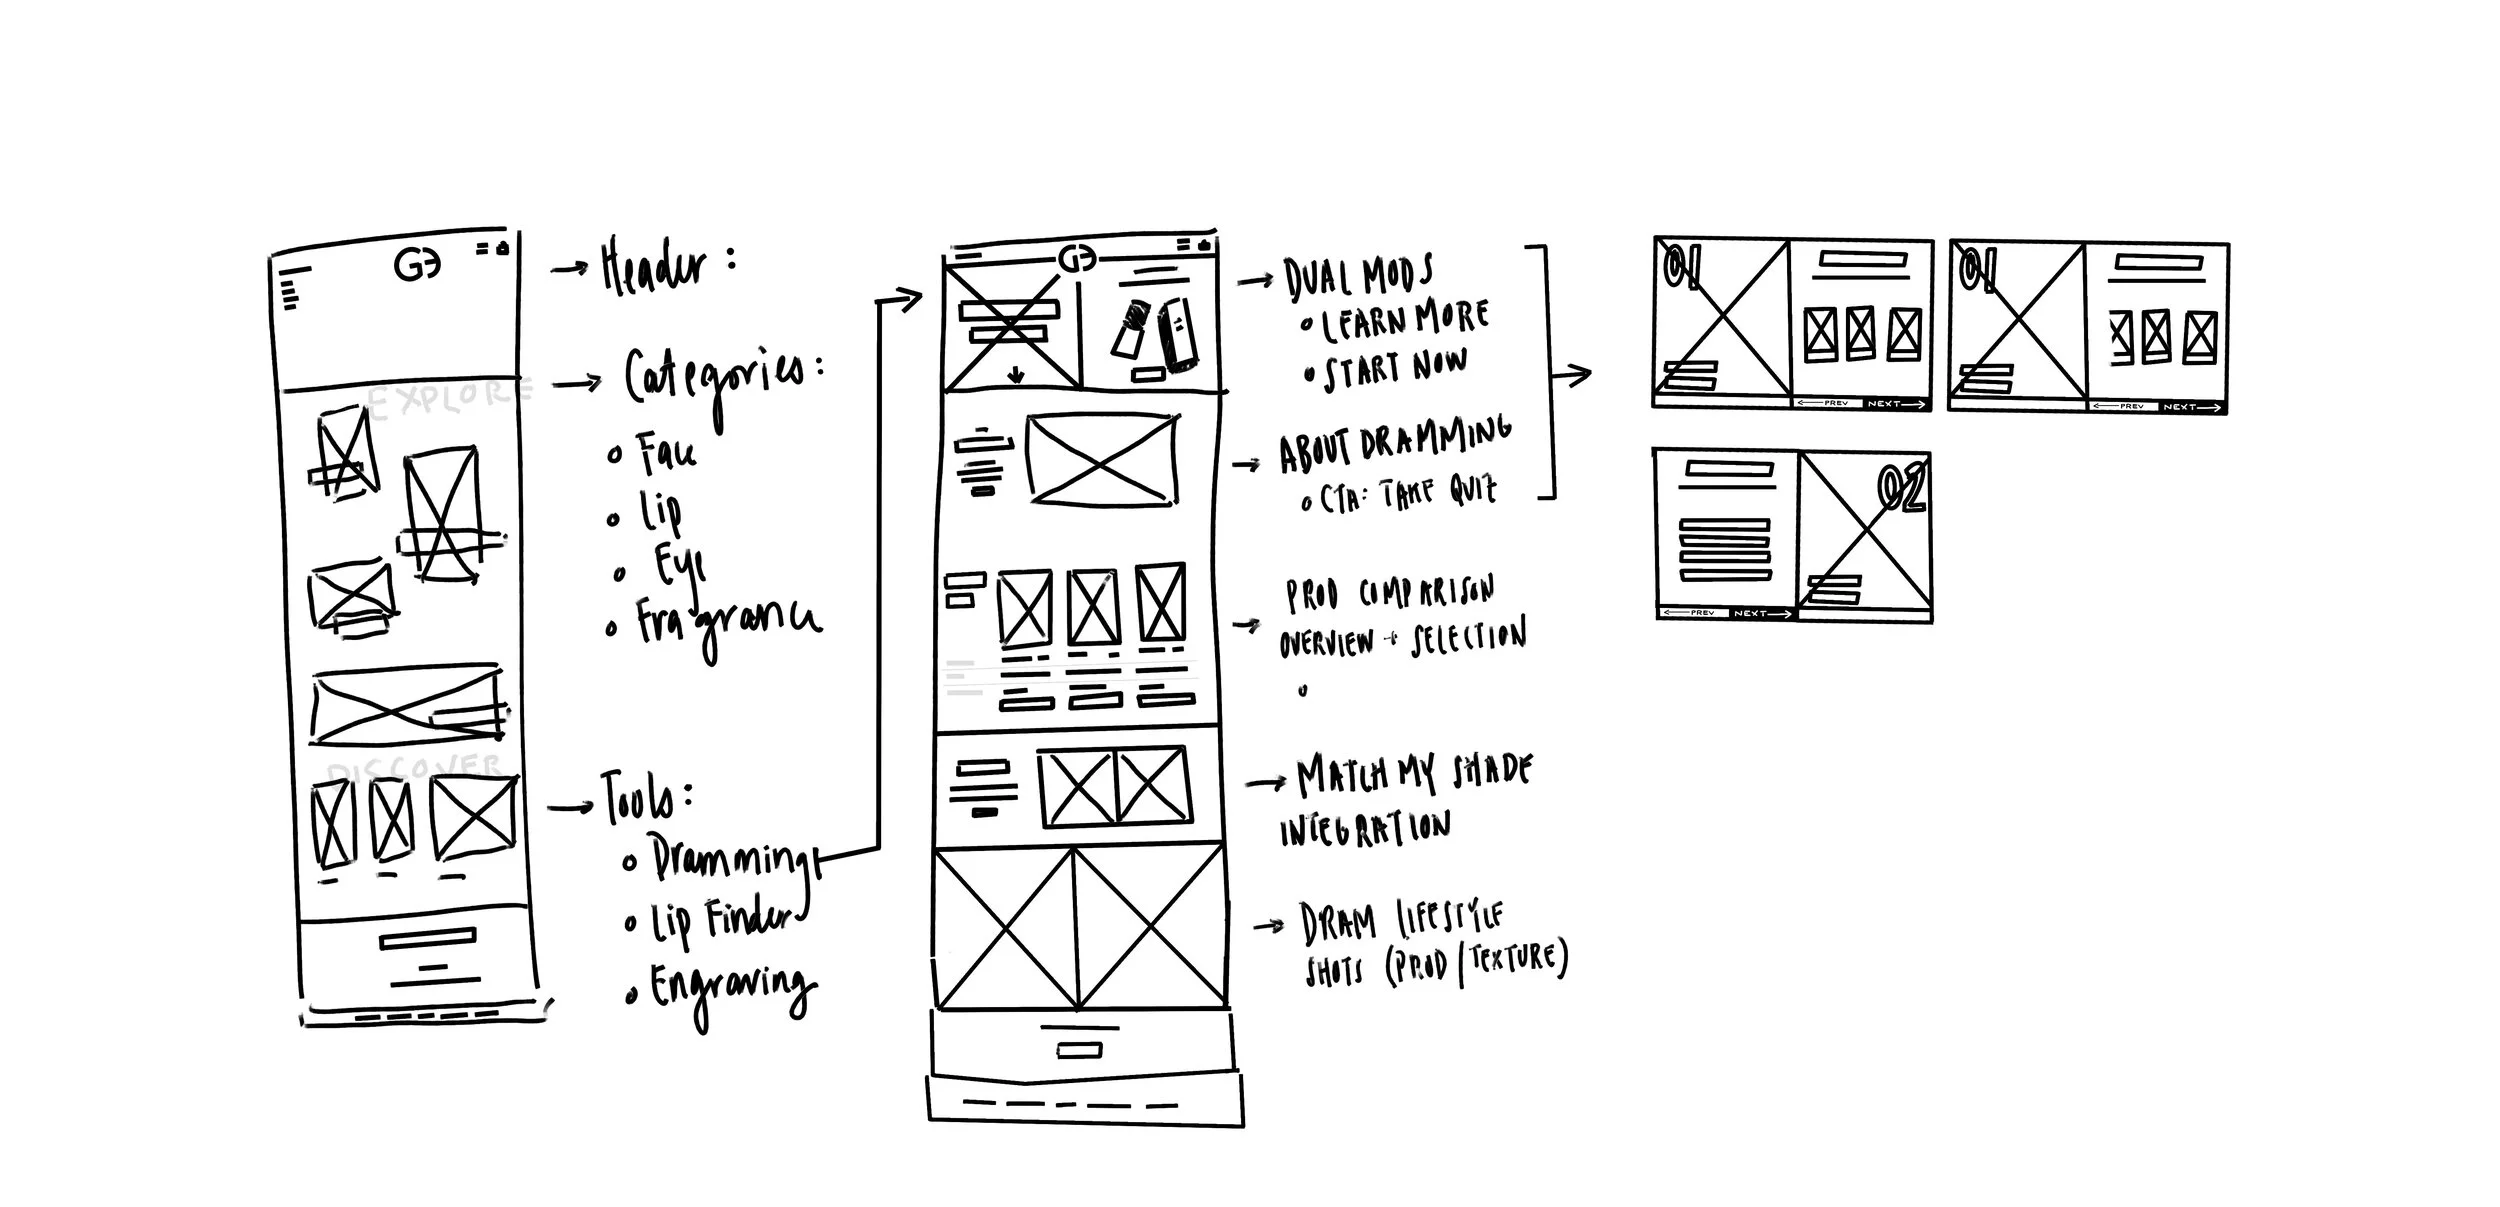 GE
EXPLORE
DISCOVER
Header:
Categories:
Face
Lip
Eye
Fragrance
Tools:
Dramming
Lip Finder
Engraving
GE
DUAL MODS
LEARN MORE
START NOW
ABOUT DRAMMING
CTA: TAKE QUIZ
PROD COMPARISON
OVERVIEW + SELECTION
MATCH MY SHADE
INTEGRATION
DRAM LIFESTYLE
SHOTS (PROD/TEXTURE)
01
PREV NEXT
01
PREV NEXT
02
PREV NEXT